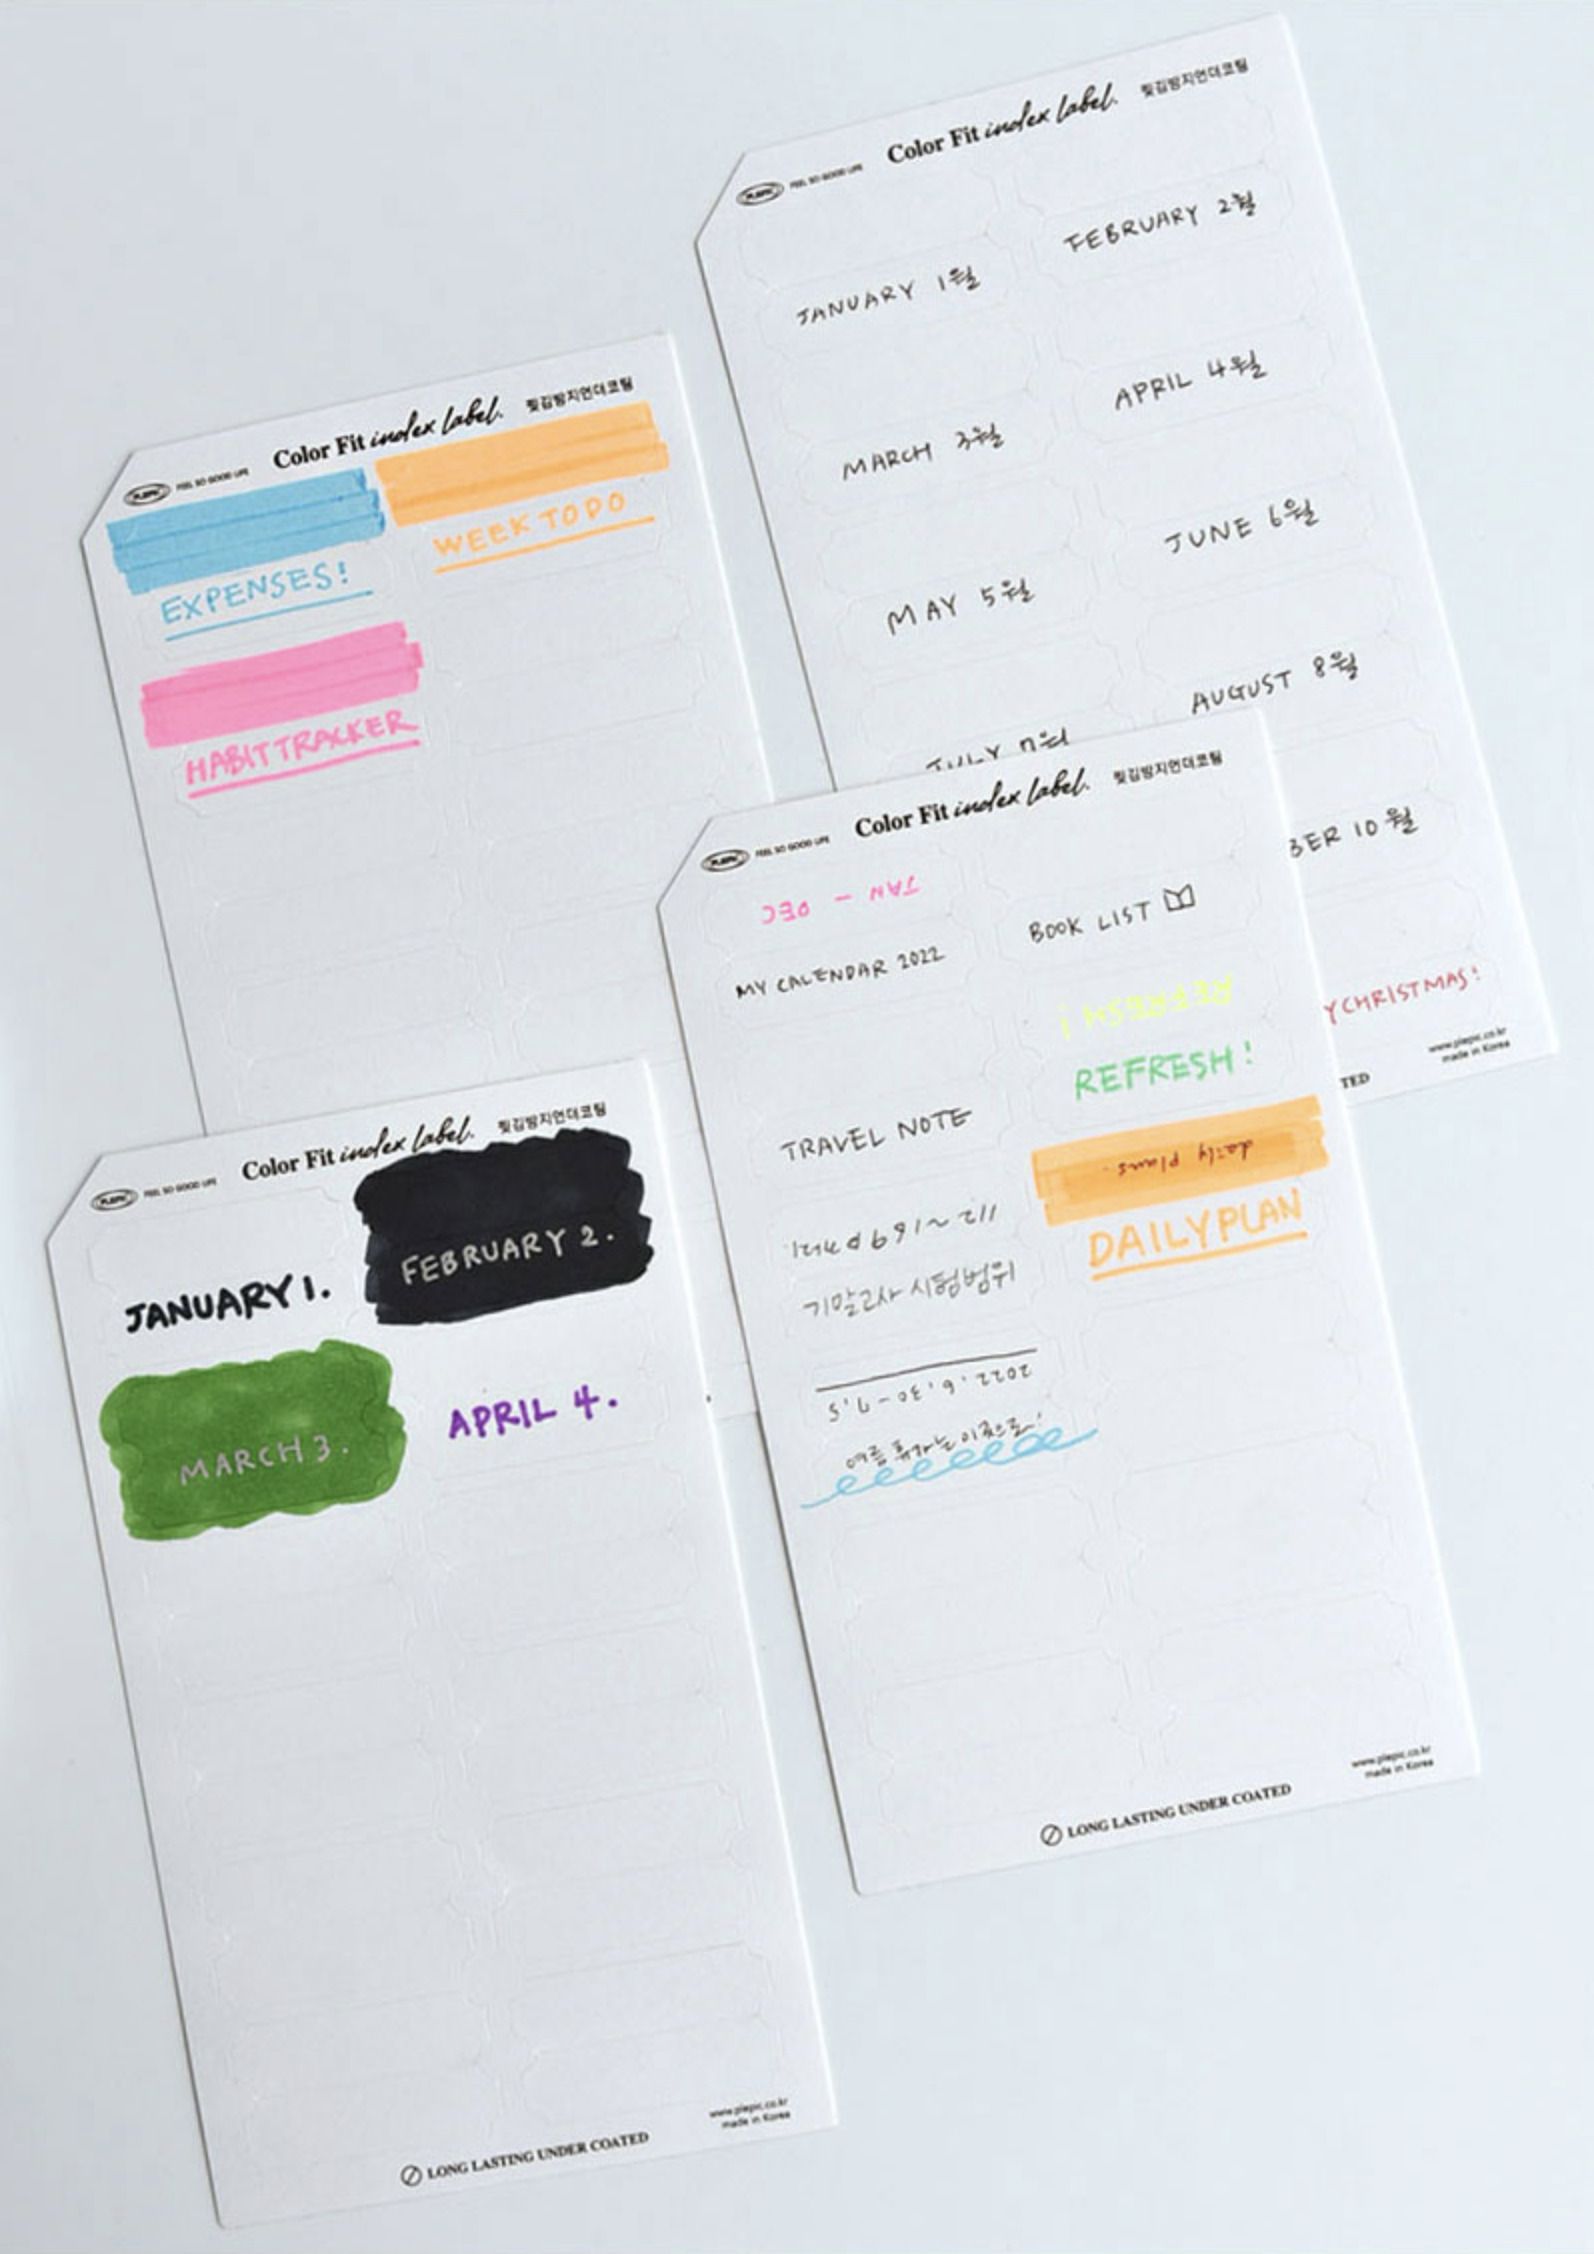 PLEPIC FEEL SO GOOD LIFE Color Fit index label. 찢김방지언더코팅
JANUARY 1월
FEBRUARY 2월
MARCH 3월
APRIL 4월
MAY 5월
JUNE 6월
JULY 7월
AUGUST 8월
BER 10월
YCHRISTMAS!
www.plepic.co.kr
made in Korea
TED
PLEPIC FEEL SO GOOD LIFE Color Fit index label. 찢김방지언더코팅
EXPENSES!
WEEK TO DO
HABIT TRACKER
PLEPIC FEEL SO GOOD LIFE Color Fit index label. 찢김방지언더코팅
JAN - DEC
MY CALENDAR 2022
BOOK LIST
REFRESH!
REFRESH!
TRAVEL NOTE
daily plans.
DAILY PLAN
112~169
기말고사 시험범위
2022.6.30-7.5
여름 휴가는 이곳으로!
www.plepic.co.kr
made in Korea
LONG LASTING UNDER COATED
PLEPIC FEEL SO GOOD LIFE Color Fit index label. 찢김방지언더코팅
JANUARY 1.
FEBRUARY 2.
MARCH 3.
APRIL 4.
www.plepic.co.kr
made in Korea
LONG LASTING UNDER COATED